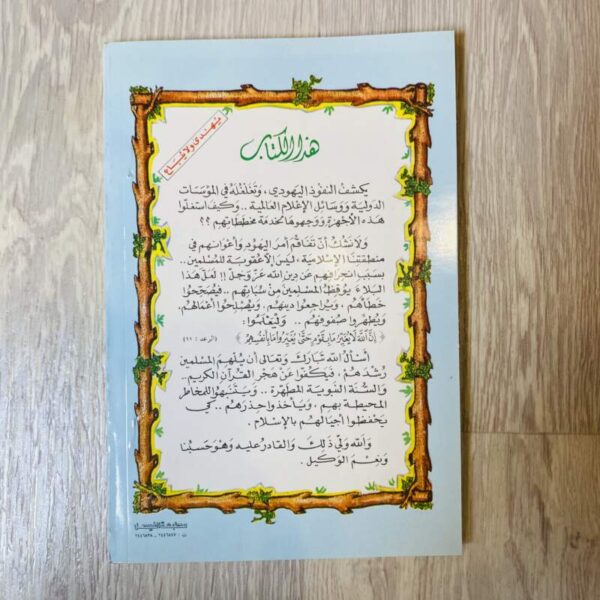 يهدى ولا يباع
هذا الكتاب
يكشف النفوذ اليهودي ، وتغلغله في المؤسسات
الدولية ووسائل الإعلام العالمية .. وكيف استغلوا
هذه الأجهزة ووجهوها لخدمة مخططاتهم ؟؟
ولا نشك أن تفاقم أمر اليهود وأعوانهم في
منطقتنا الإسلامية ، ليس إلا عقوبة للمسلمين ..
بسبب انحرافهم عن دين الله عز وجل !! لعل هذا
البلاء يوقظ المسلمين من سباتهم .. فيصححوا
خطأهم ، ويراجعوا دينهم ، ويصلحوا أعمالهم ،
ويطهروا صفوفهم .. وليعلموا :
﴿ إن الله لا يغير ما بقوم حتى يغيروا ما بأنفسهم ﴾ (الرعد : ١١)
أسأل الله تبارك وتعالى أن يلهم المسلمين
رشدهم ، فيكفوا عن هجر القرآن الكريم ..
والسنة النبوية المطهرة .. ويتنبهوا للمخاطر
المحيطة بهم ، ويأخذوا حذرهم .. كي
يحفظوا أجيالهم بالإسلام .
والله ولي ذلك والقادر عليه وهو حسبنا
ونعم الوكيل .